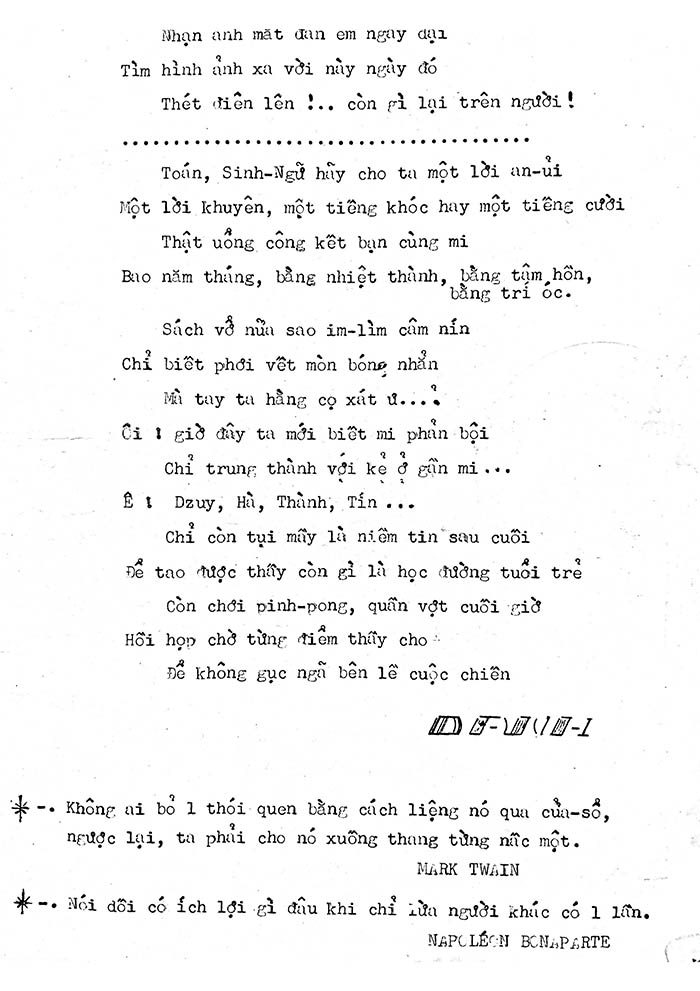 Nhận anh mắt đàn em ngây dại
Tìm hình ảnh xa vời này ngày đó
Thét điên lên !.. còn gì lại trên người !
........................................
Toán, Sinh-Ngữ hãy cho ta một lời an-ủi
Một lời khuyên, một tiếng khóc hay một tiếng cười
Thật uổng công kết bạn cùng mi
Bao năm tháng, bằng nhiệt thành, bằng tâm hồn,
bằng trí óc.
Sách vở nữa sao im-lìm câm nín
Chỉ biết phơi vết mòn bóng nhẵn
Mà tay ta hằng cọ xát ư....
Ôi ! giờ đây ta mới biết mi phản bội
Chỉ trung thành với kẻ ở gần mi...
Ê ! Dzuy, Hà, Thành, Tín ...
Chỉ còn tụi mầy là niềm tin sau cuối
Để tao được thấy còn gì là học đường tuổi trẻ
Còn chơi pinh-pong, quần vợt cuối giờ
Hồi họp chờ từng điểm thầy cho
Để không gục ngã bên lề cuộc chiến
-. Không ai bỏ 1 thói quen bằng cách liệng nó qua cửa-sổ,
ngược lại, ta phải cho nó xuống thang từng nấc một.
MARK TWAIN
-. Nói dối có ích lợi gì đâu khi chỉ lừa người khác có 1 lần.
NAPOLÉON BONAPARTE